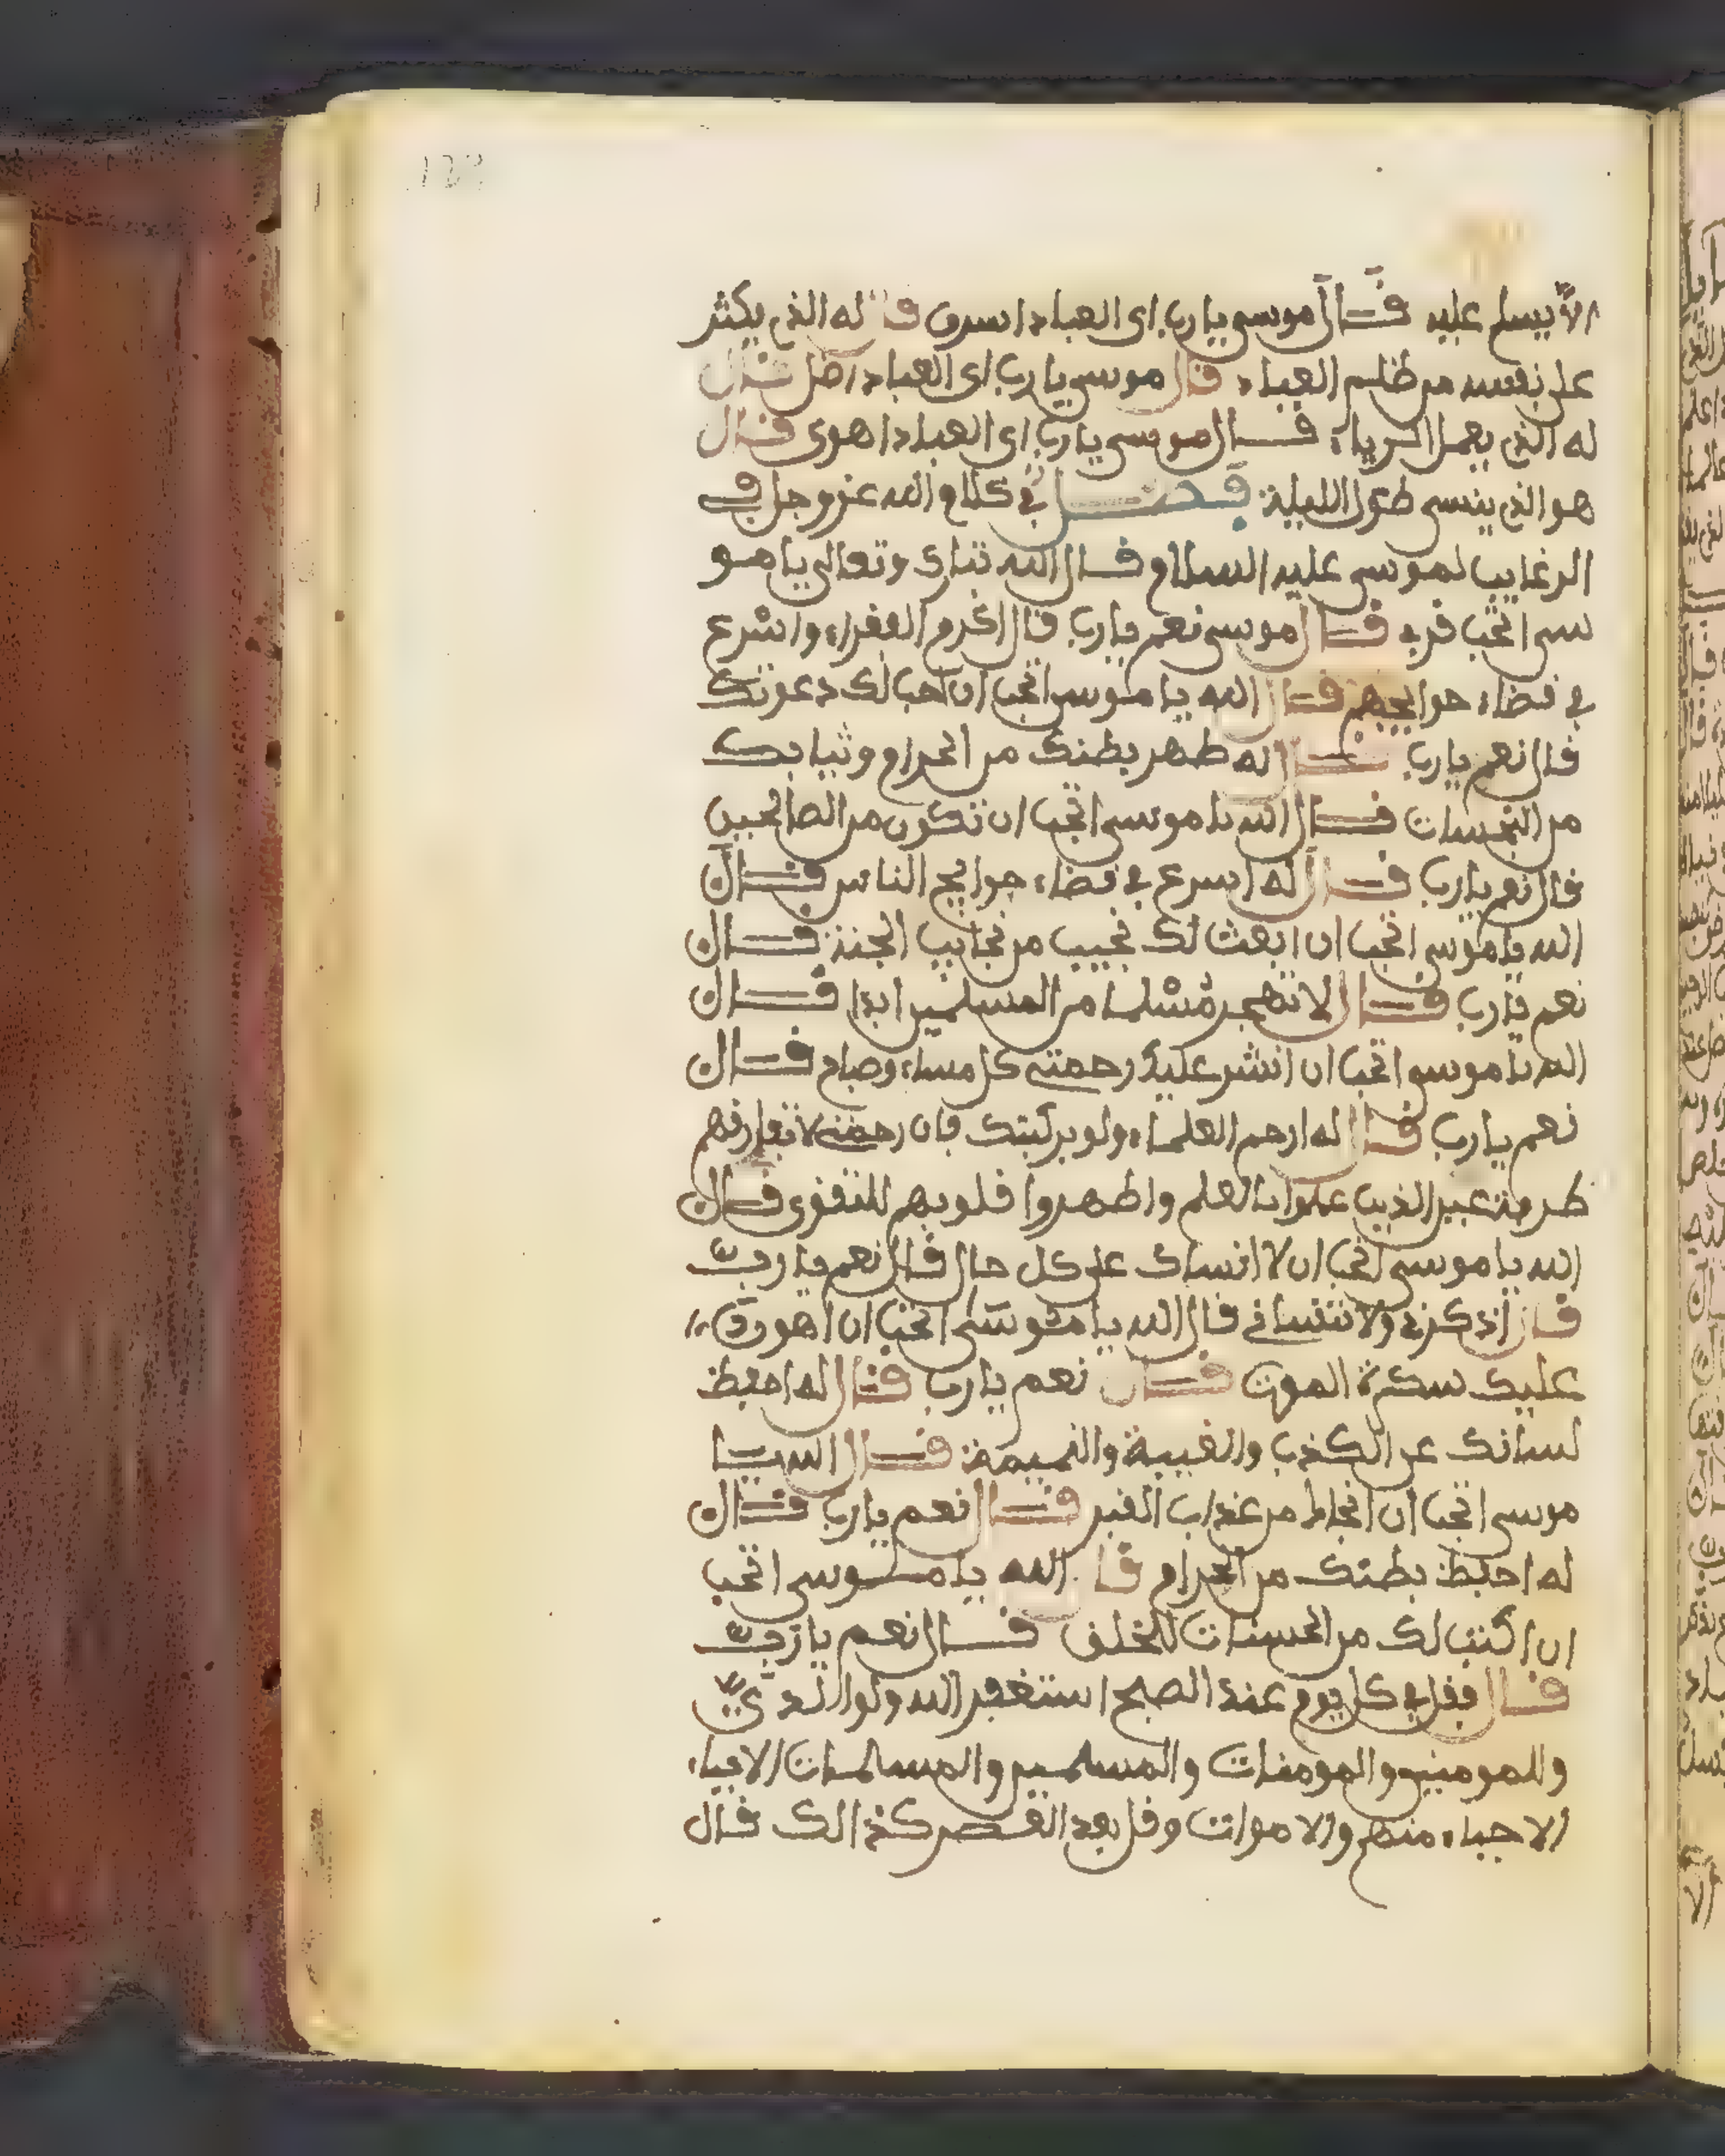 الا يسلم عليه قال موسى يا رب اى العباد اسرق قال له الذى يكثر
على نفسه من ظلم العباد قال موسى يا رب اى العباد اضل قال
له الذى يعمل الرياء قال موسى يا رب اى العباد اهوى قال
هو الذى ينسى طول الليلة فصل في كلام الله عز وجل في
الرغايب لموسى عليه السلام قال الله تبارك وتعالى يا مو
سى اتحب قربي قال موسى نعم يا رب قال اكرم الفقراء واسرع
في قضاء حوايجهم قال الله يا موسى اتحب ان اهب لك دعوتك
قال نعم يا رب قال له طهر بطنك من الحرام وثيابك
من النجسات قال الله يا موسى اتحب ان تكون من الصالحين
قال نعم يا رب قال له اسرع في قضاء حوايج الناس قال
الله يا موسى اتحب ان ابعث لك نجيب من نجايب الجنة قال
نعم يا رب قال لا تهجر مسلما من المسلمين ابدا قال
الله يا موسى اتحب ان انشر عليك رحمتي كل مساء وصباح قال
نعم يا رب قال له ارحم العلماء ولو بركبتك فان رحمتي لا تفارقهم
طرفة عين الذين عملوا بالعلم واطهروا قلوبهم للتقوى قال
الله يا موسى اتحب ان لا انساك على كل حال قال نعم يا رب
قال اذكرني ولا تنساني قال الله يا موسى اتحب ان اهون
عليك سكرة الموت قال نعم يا رب قال له احفظ
لسانك عن الكذب والغيبة والنميمة قال الله يا
موسى اتحب ان انجاك من عذاب القبر قال نعم يا رب قال
له احفظ بطنك من الحرام قال الله يا موسى اتحب
ان اكتب لك من الحسنات للخلف قال نعم يا رب
قال فقل في كل يوم عند الصبح استغفر الله ولوالدي
وللمومنين والمومنات والمسلمين والمسلمات الاحياء
الاحياء منهم والاموات وقل بعد العصر كذالك قال